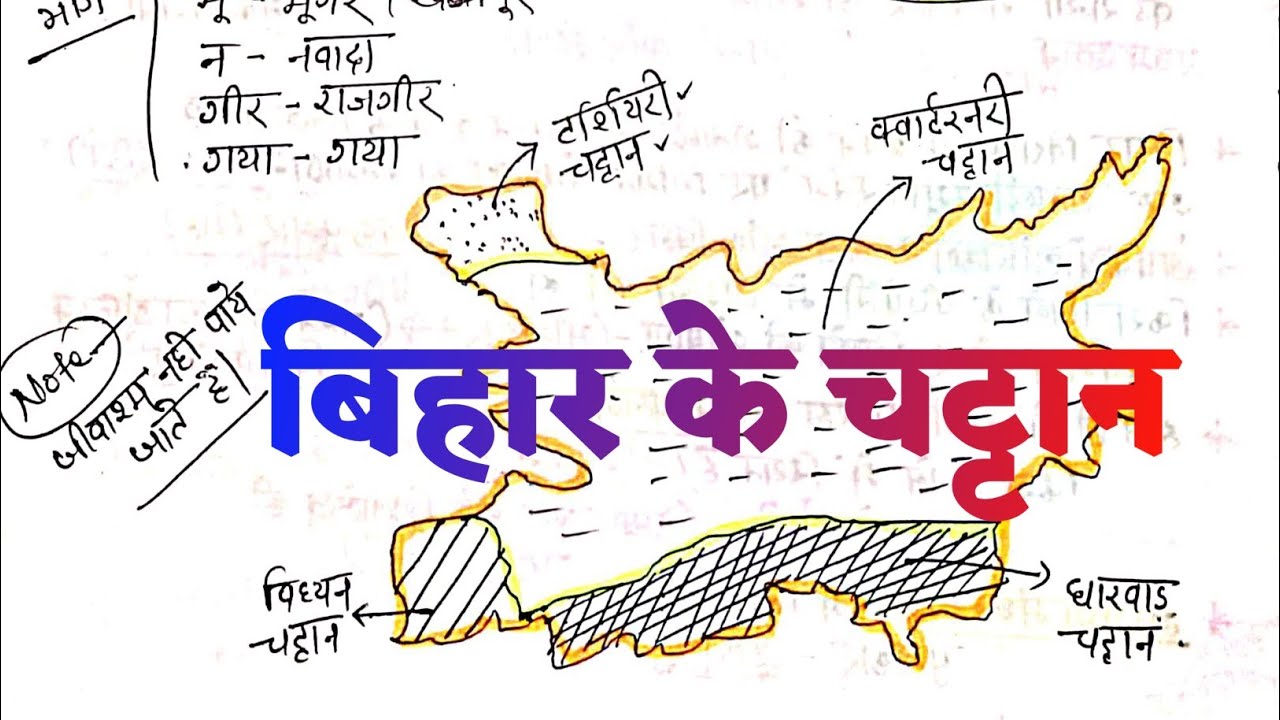 भाग
मू - मुंगेर
न - नवादा
गीर - राजगीर
गया - गया
टर्शियरी
चट्टान
क्वार्टरनरी
चट्टान
Note
जीवाश्म नही पाये
जाते हैं।
बिहार के चट्टान
विध्यन
चट्टान
धारवाड़
चट्टान